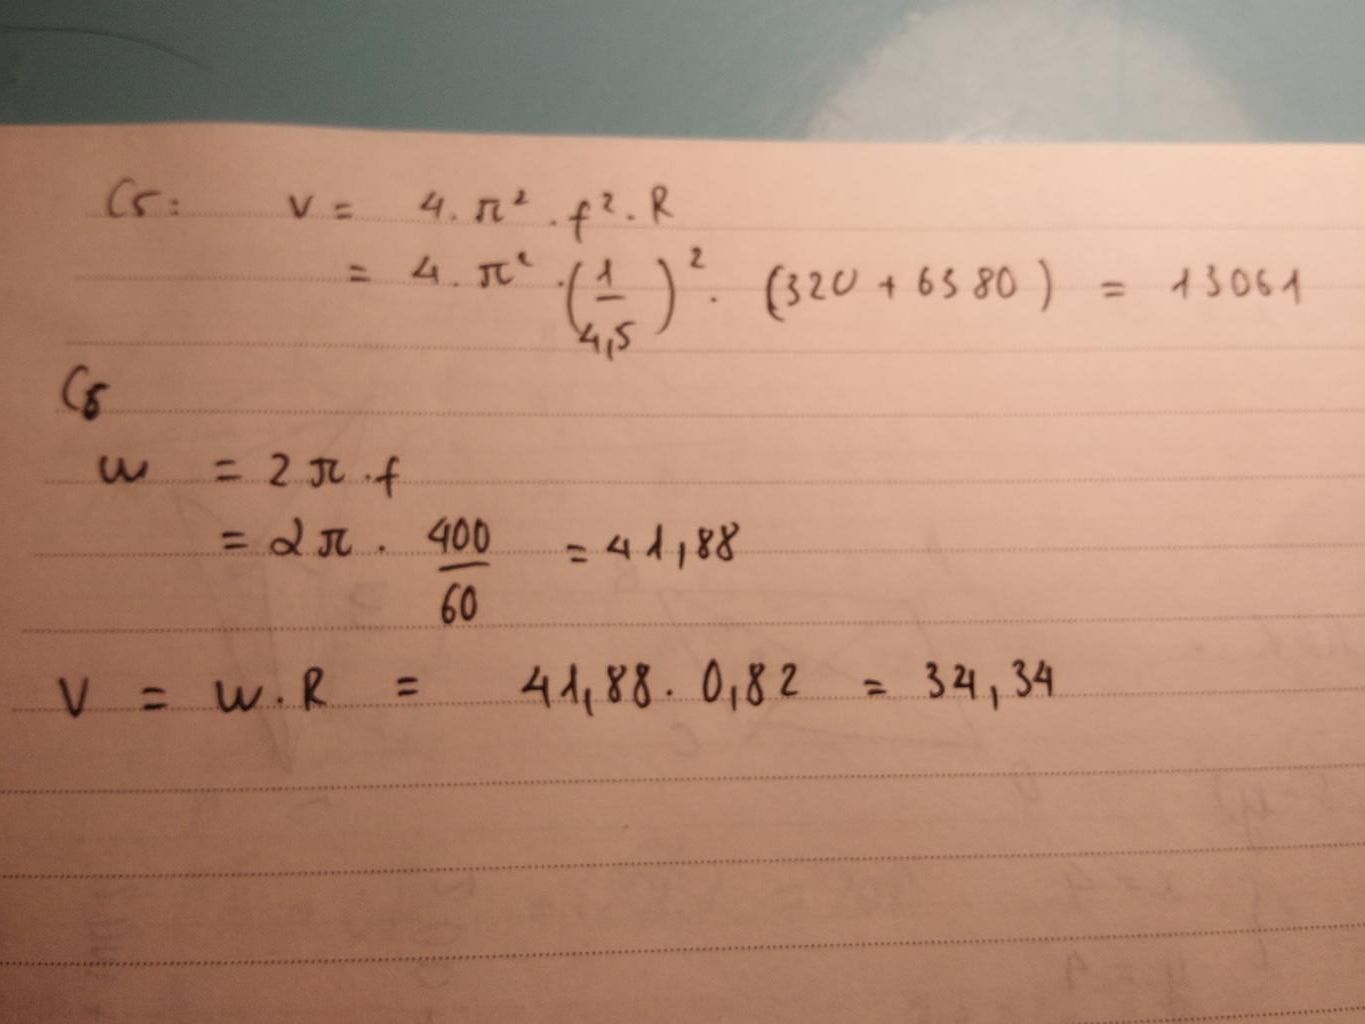 C5: v = 4. π² . f². R
= 4. π² . (1/4,5)² . (320 + 6380) = 13061
C6
w = 2π.f
= 2π . 400/60 = 41,88
V = w.R = 41,88. 0,82 = 34,34